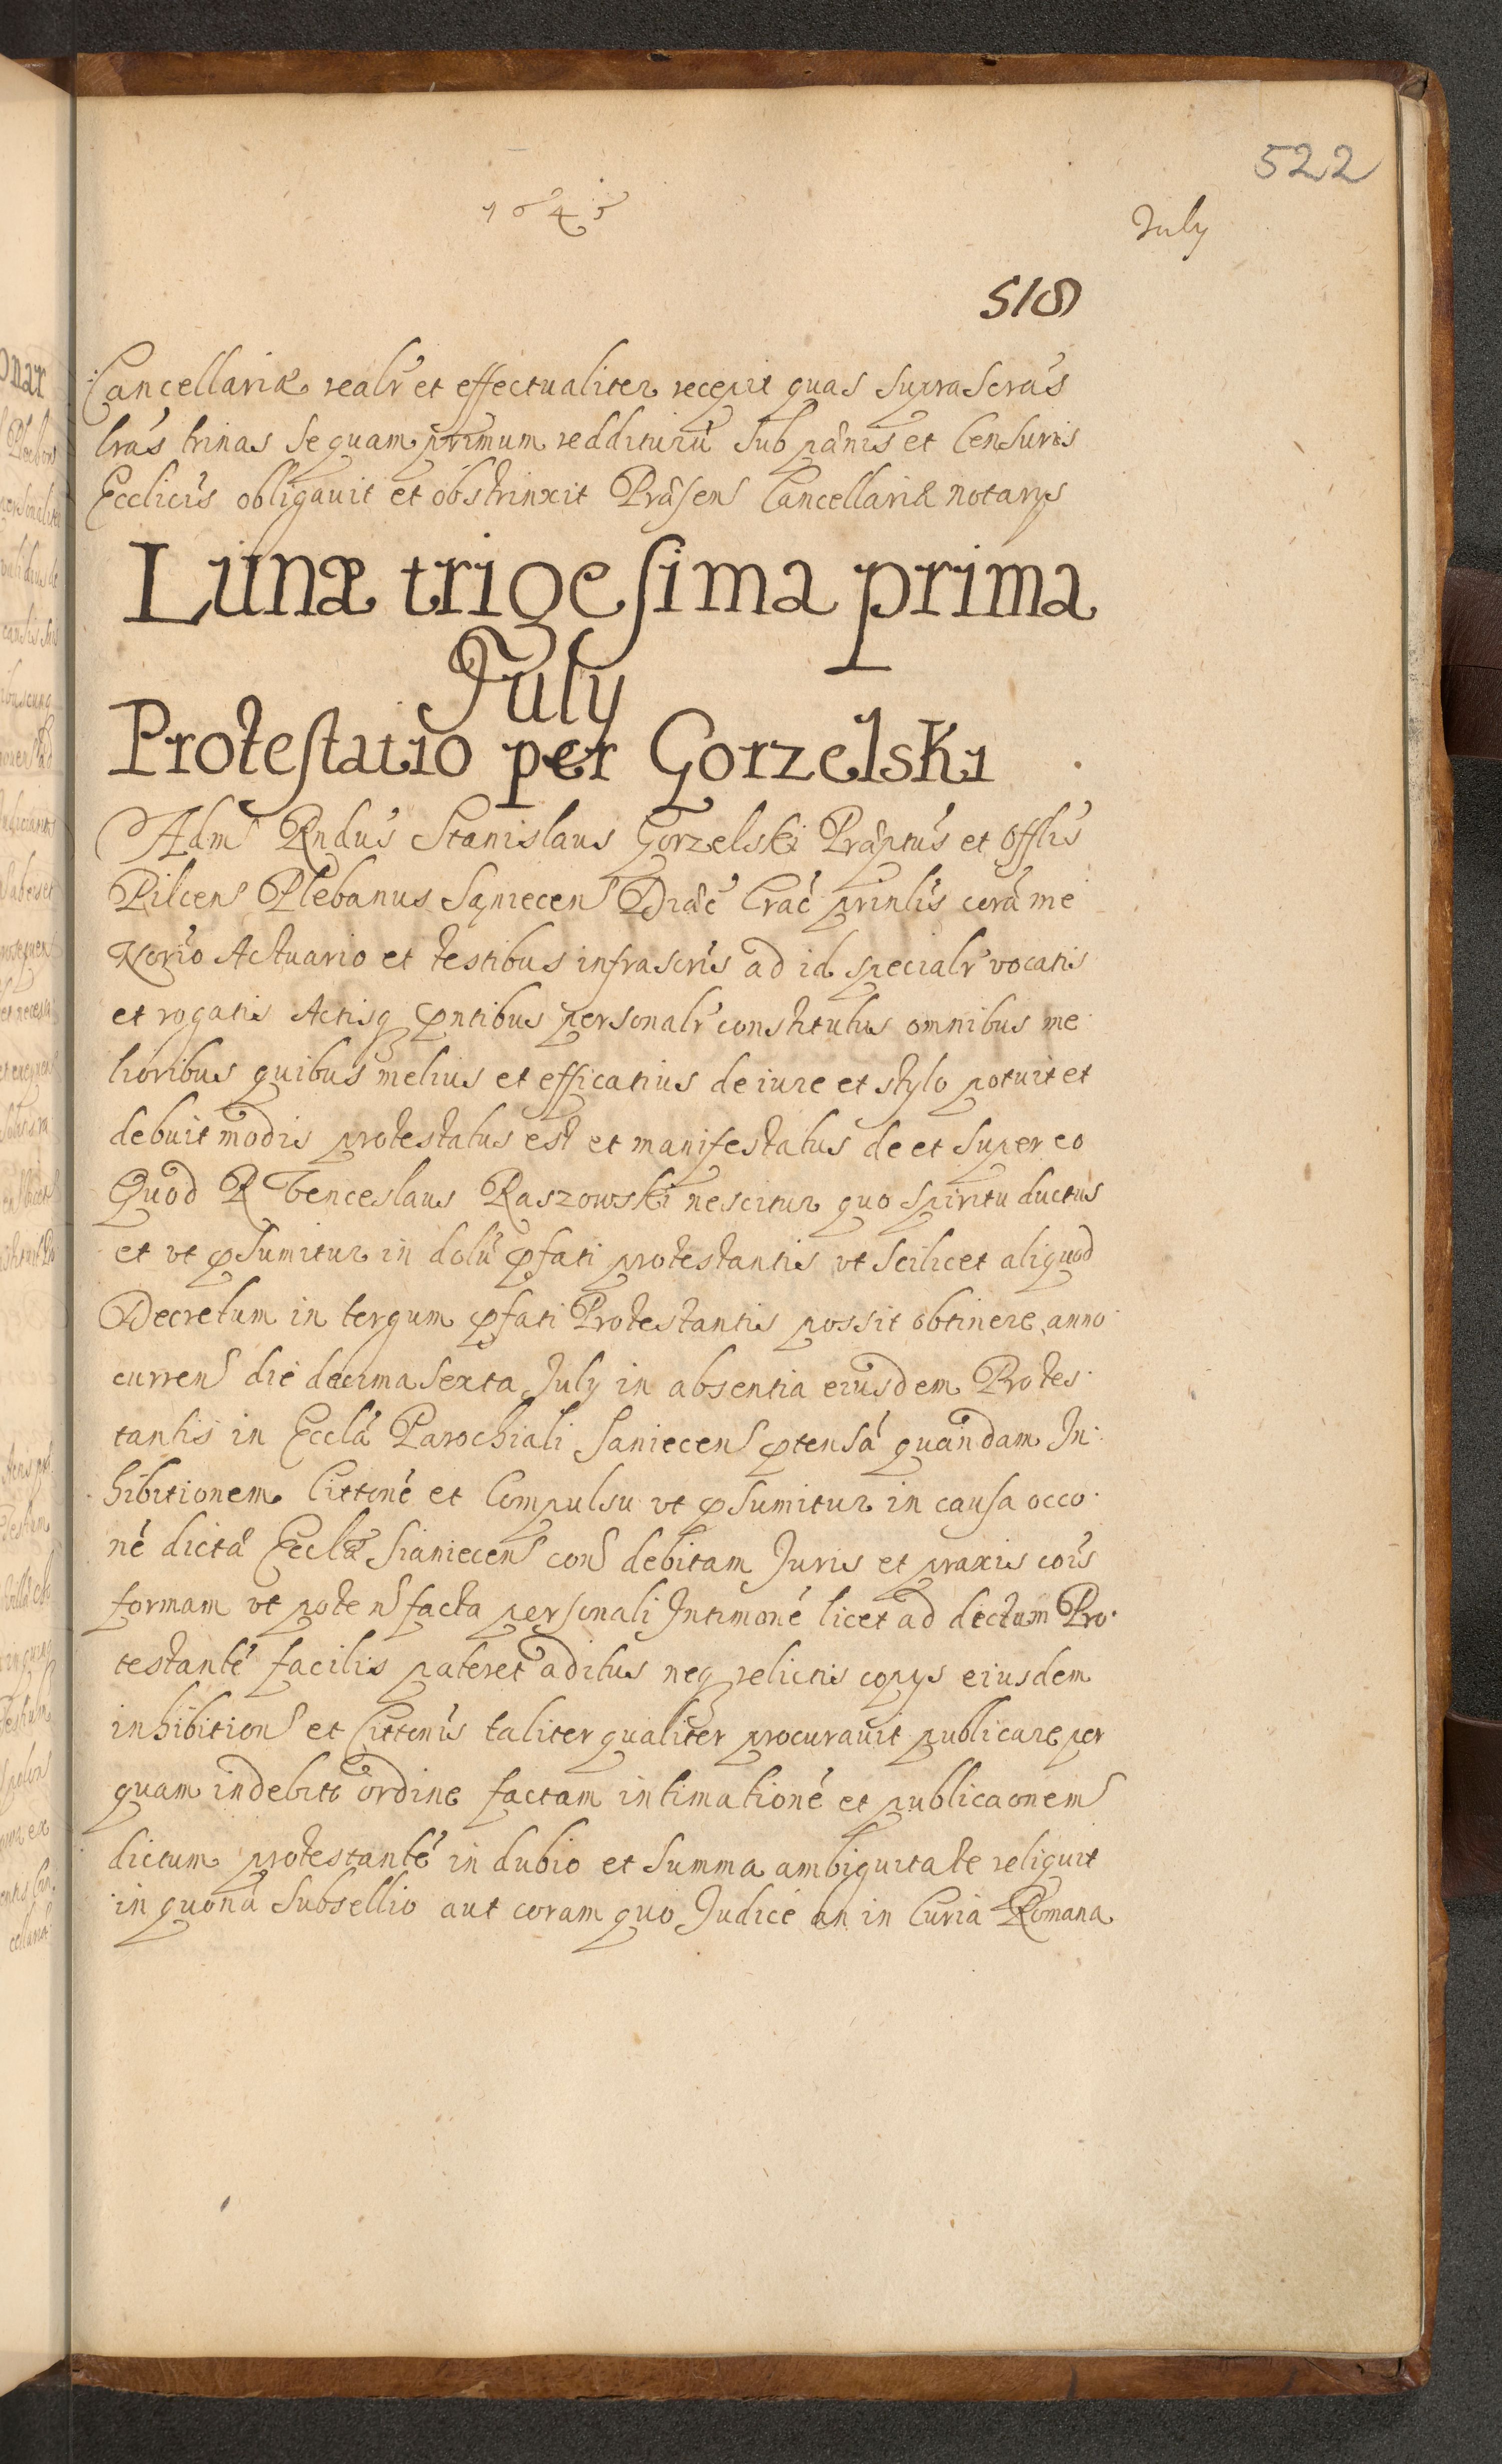 522
1645
July
518
Cancellariæ realr et effectualiter recepit quas suprascrãs
lrãs trinas se quam primum redditurũ sub pænis et Censuris
Ecclicis obligauit et obstrinxit Præsen Cancellariæ notarys
Lunæ trigesima prima
July
Protestatio per Gorzelski
Adm Rndus Stanislaus Gorzelski Præptus et Offlis
Pilcen Plebanus Sąniecen Diæc Crac prinlis corã me
Norio Actuario et testibus infrascris ad id specialr vocatis
et rogatis Actisq pntibus personalr constitutus omnibus me
lioribus quibus melius et efficatius de iure et stylo potuit et
debuit modis protestatus est et manifestatus de et super eo
Quod R Venceslaus Raszowski nescitur quo spiritu ductus
et vt psumitur in dolũ pfati protestantis vt scilicet aliquod
Decretum in tergum pfati Protestantis possit obtinere anno
curren die decima sexta July in absentia eiusdem Protes
tantis in Eccla Parochiali Saniecen ptensã quandam In
hibitionem Cittonẽ et Compulsu vt psumitur in causa occo
nẽ dictæ Ecclæ Sianiecen con debitam Juris et praxis cois
formam vt poten facta personali Intimonẽ licet ad dictum Pro
testantẽ facilis pateret aditus neq relictis copys eiusdem
inhibition et Cittonis taliter qualiter procurauit publicare per
quam indebite ordine factam intimationẽ et publicaonem
dictum protestantẽ in dubio et summa ambiguitate reliquit
in quonã subsellio aut coram quo Judice an in Curia Romana